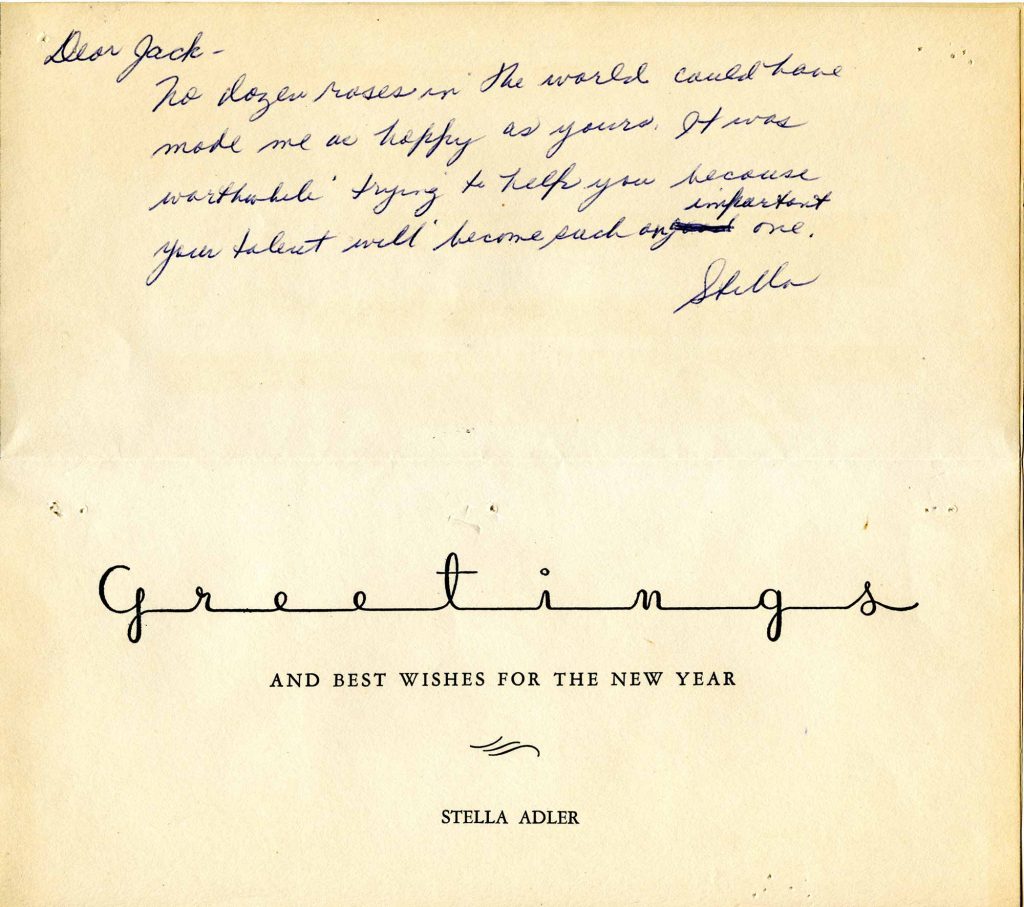 Dear Jack -
No dozen roses in the world could have
made me as happy as yours. It was
worthwhile trying to help you because
important
your talent will become such an one.
Stella
Greetings
AND BEST WISHES FOR THE NEW YEAR
STELLA ADLER